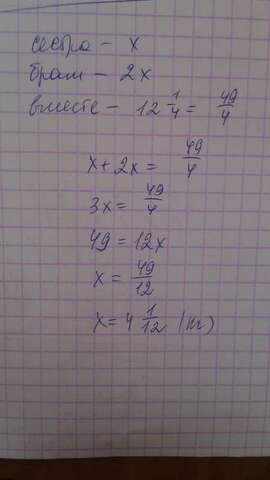 сестра - x
брат - 2x
вместе - 12 1/4 = 49/4
x + 2x = 49/4
3x = 49/4
49 = 12x
x = 49/12
x = 4 1/12 (кг)